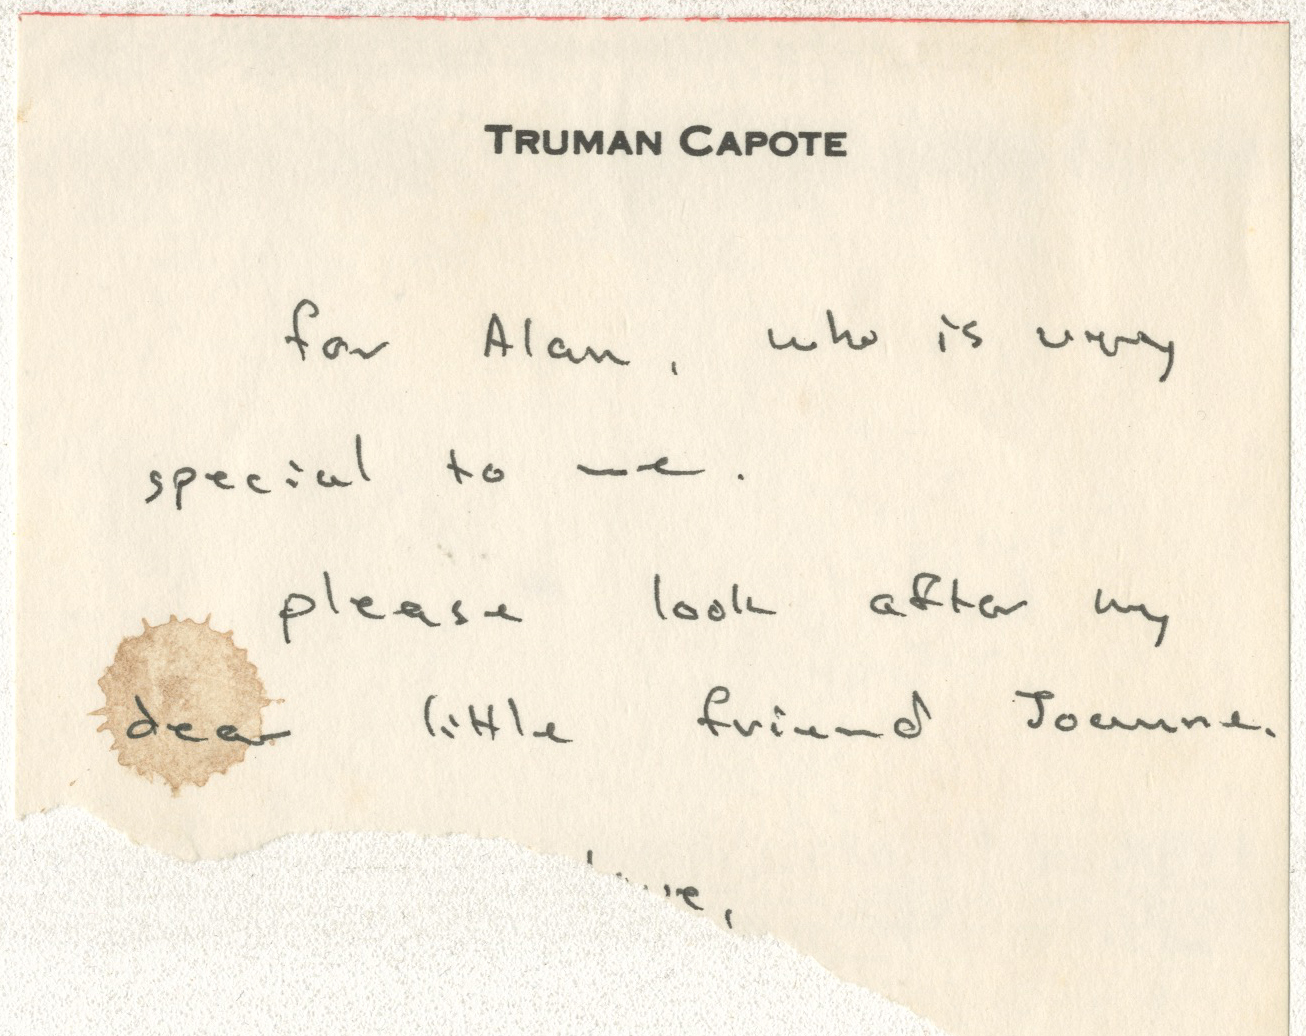 TRUMAN CAPOTE
for Alan, who is very
special to me.
please look after my
dear little friend Joanne.
love,